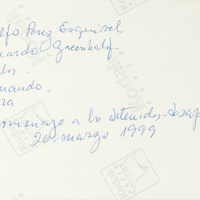 lfo Perez Esquivel
uardo Greenhalf.
los.
nando.
ra
omenaje a los detenidos-desap
20-marzo 1999